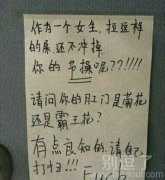 作为一个女生，拉这样
的屎还不冲掉
你的节操呢??!!!!
请问你的肛门是菊花
还是霸王花?
有点良知的请自己
打扫!!!
别逗了